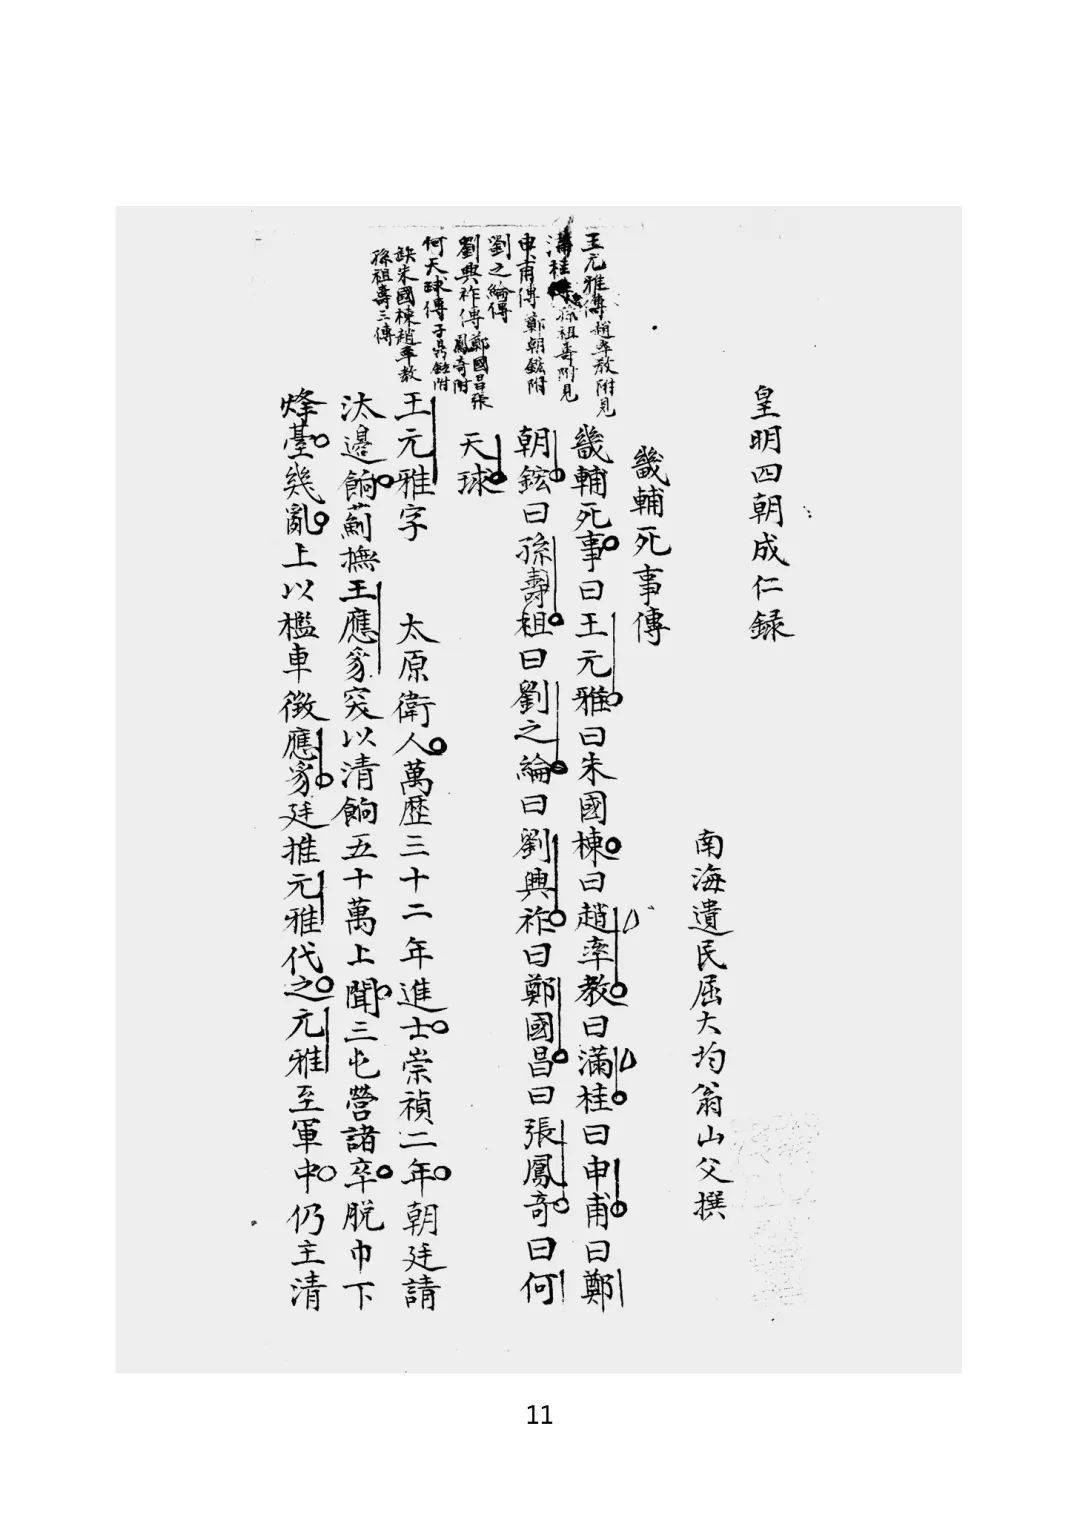 皇明四朝成仁録
南海遺民屈大均翁山父撰
畿輔死事傳
畿輔死事曰王元雅曰朱國棟曰趙率教曰滿桂曰申甫曰鄭
朝鋐曰孫壽祖曰劉之綸曰劉興祚曰鄭國昌曰張鳳奇曰何
天球
王元雅字 太原衛人萬歷三十二年進士崇禎二年朝廷請
汰邊餉薊撫王應豸突以清餉五十萬上聞三屯營諸卒脫巾下
烽臺幾亂上以檻車徵應豸廷推元雅代之元雅至軍中仍主清
王元雅傳趙率教附見
滿桂傳孫祖壽附見
申甫傳鄭朝鋐附
劉之綸傳
劉興祚傳鄭國昌張鳳奇附
何天球傳子
缺朱國棟趙率教
孫祖壽三傳
11